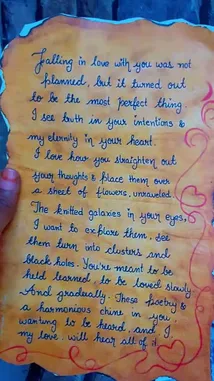 Falling in love with you was not
planned, but it turned out
to be the most perfect thing.
I see truth in your intentions &
my eternity in your heart.
I love how you straighten out
your thoughts & place them over
a sheet of flowers, unraveled.
The knitted galaxies in your eyes,
I want to explore them, see
them turn into clusters and
black holes. You're meant to be
held learned, to be loved slowly
And gradually. These poetry &
a harmonious chime in you
wanting to be heard, and I,
my love, will hear all of it